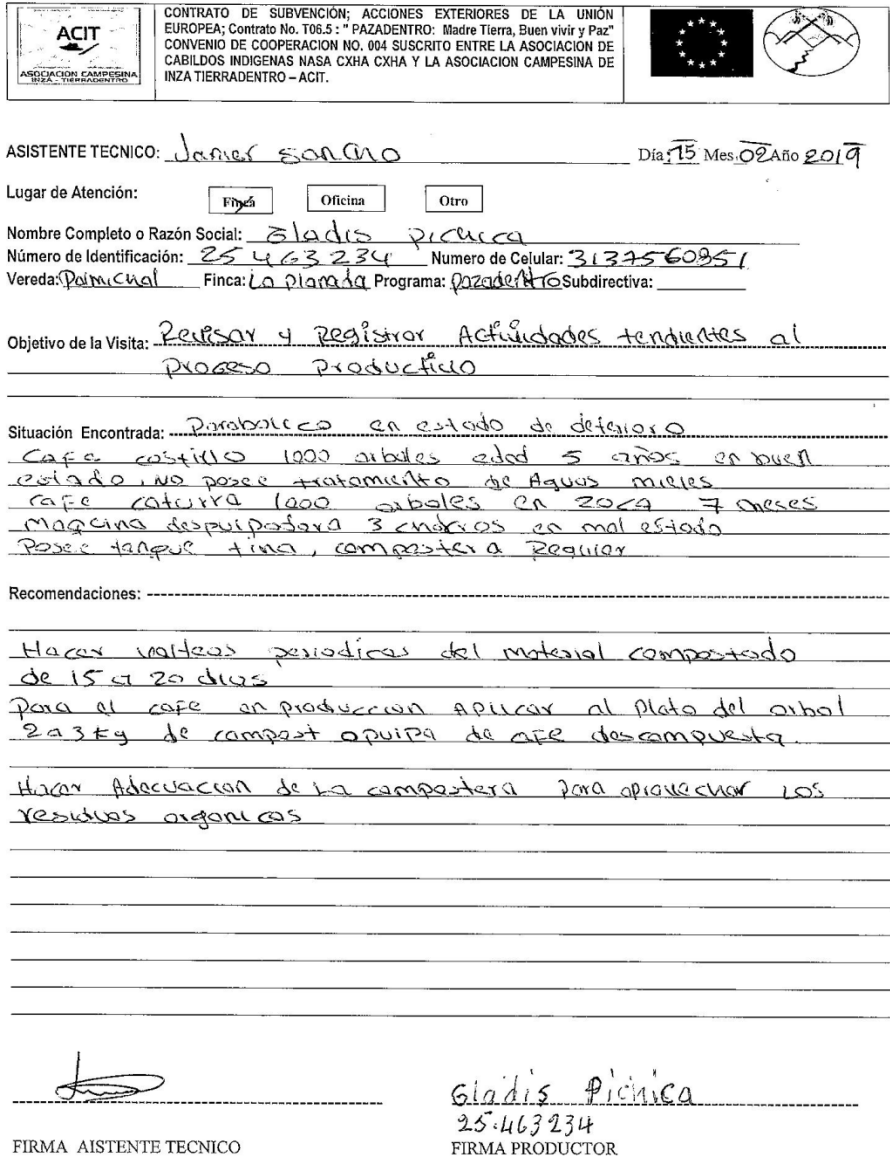 ACIT
ASOCIACION CAMPESINA
INZA - TIERRADENTRO
CONTRATO DE SUBVENCIÓN; ACCIONES EXTERIORES DE LA UNIÓN
EUROPEA; Contrato No. T06.5 : " PAZADENTRO: Madre Tierra, Buen vivir y Paz"
CONVENIO DE COOPERACION NO. 004 SUSCRITO ENTRE LA ASOCIACION DE
CABILDOS INDIGENAS NASA CXHA CXHA Y LA ASOCIACION CAMPESINA DE
INZA TIERRADENTRO – ACIT.
ASISTENTE TECNICO: Día: 15 Mes. 02 Año 2019
Lugar de Atención: Finca Oficina Otro
Nombre Completo o Razón Social: Gladis Pichica
Número de Identificación: 25 463 234 Numero de Celular: 3137560851
Vereda: Palmichal Finca: La planada Programa: pazadentro Subdirectiva:
Objetivo de la Visita: Revisar y Registrar Actividades tendientes al
Proceso Productivo
Situación Encontrada: Parabolico en estado de deterioro
Cafe castillo 1000 arboles edad 5 años en buen
estado, No posee tratamiento de Aguas mieles
cafe caturra 1000 arboles en zoca 7 meses
Maquina despulpadora 3 chorros en mal estado
Posee tanque tina, compostera Regular
Recomendaciones:
Hacer volteos periodicos del material compostado
de 15 a 20 dias
Para el cafe en produccion Aplicar al Plato del arbol
2 a 3 kg de compost o pulpa de cafe descompuesta.
Hacer Adecuacion de La compostera Para aprovechar Los
residuos organicos
Gladis Pichica
25.463234
FIRMA AISTENTE TECNICO FIRMA PRODUCTOR